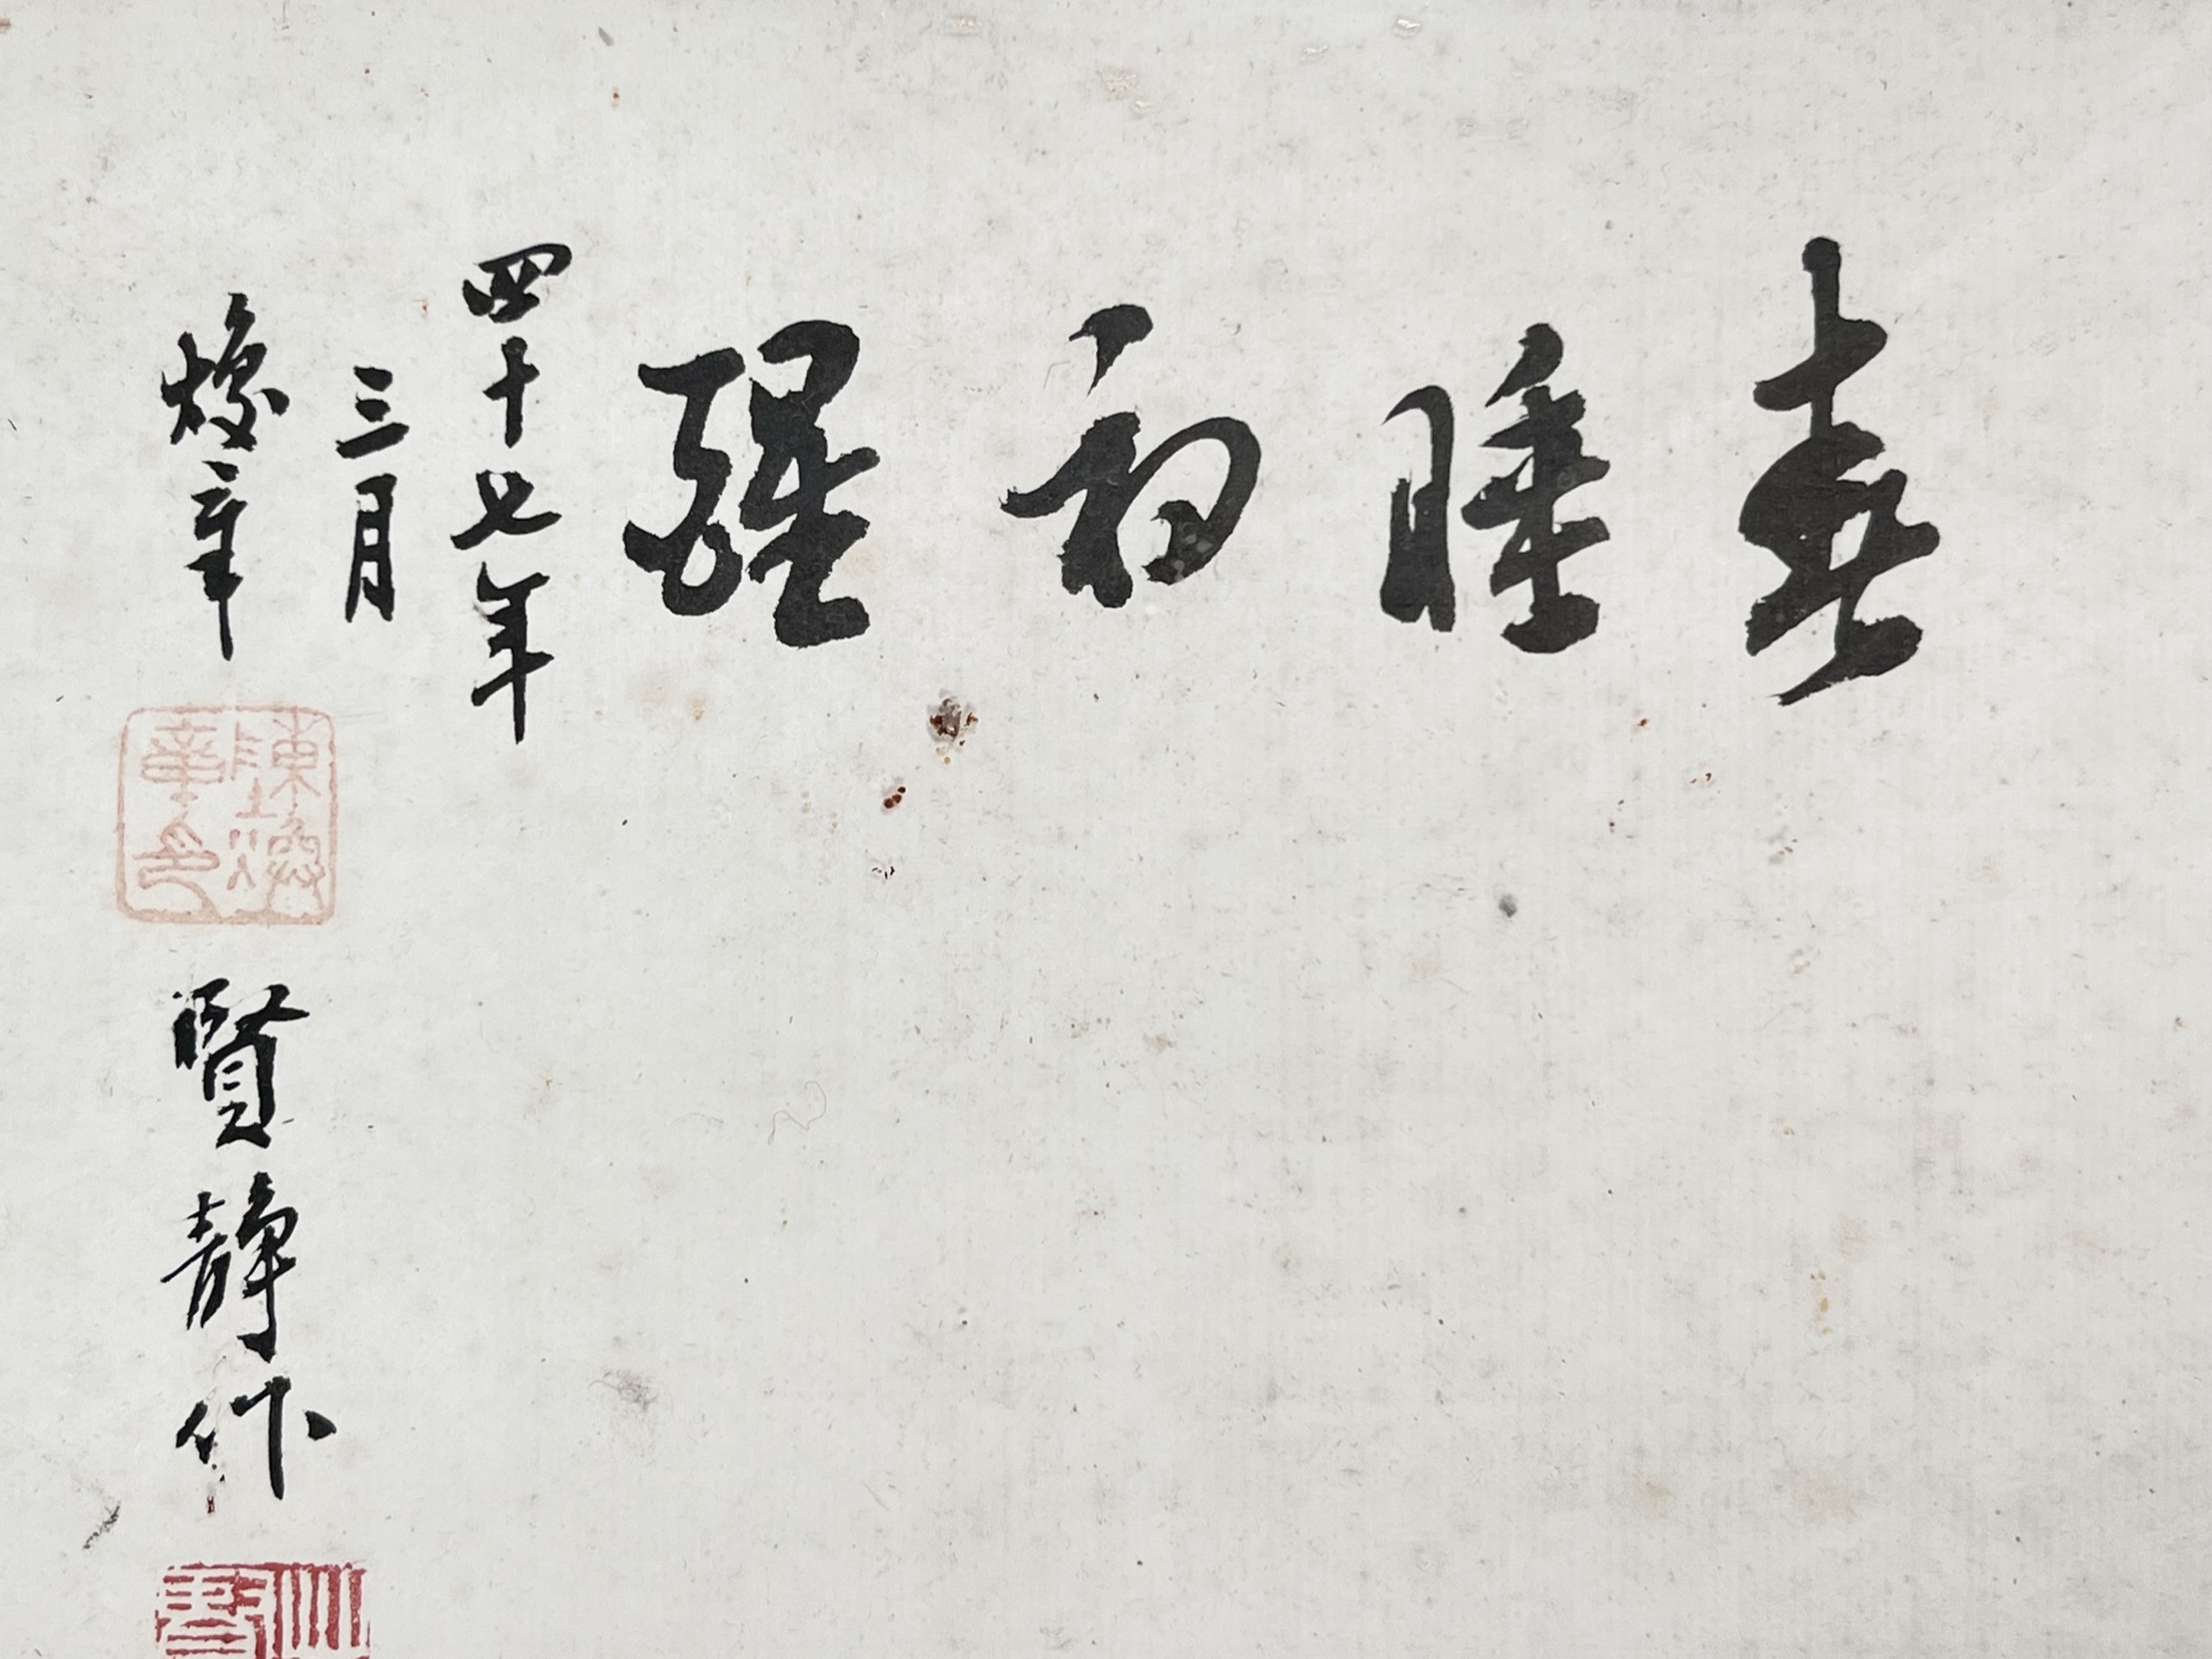 春睡初醒
四十七年
三月
煥章
陳煥章印
賢靜作